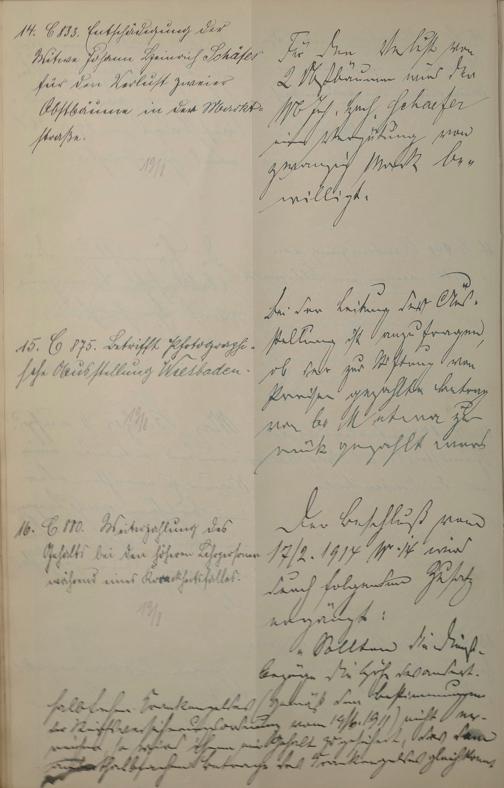 14. C 833. Entschädigung der
Witwe Johann Heinrich Schäfer
für den Verlust zweier
Obstbäume in der Markt=
straße.
19/1
Für den Verlust von
2 Obstbäumen wird der
W Joh. Hch. Schaefer
eine Vergütung von
zwanzig Mark be=
willigt.
15. C 875. Betrifft Photographi=
sche Ausstellung Wiesbaden.
19/1
Bei der Leitung der Aus=
stellung ist anzufragen,
ob der zur Stiftung von
Preisen gezahlte Betrag
von 60 M etwa zu=
rück gezahlt wird
16. C 880. Weiterzahlung des
Gehalts bei den höheren Lehrpersonen
während eines Krankheitsfalles.
19/1
Der Beschluß vom
17/2. 1914 N 14 wird
durch folgenden Zusatz
ergänzt:
"Sollten die Dienst=
bezüge die Höhe des andert=
halbfachen Krankengeldes (gemäß den Bestimmungen
der Reichsversicherungsordnung vom 19/7. 1911) nicht er=
reichen, so wird ihnen ein Gehalt zugesichert, das dem
anderthalbfachen Betrage des Krankengeldes gleichkommt